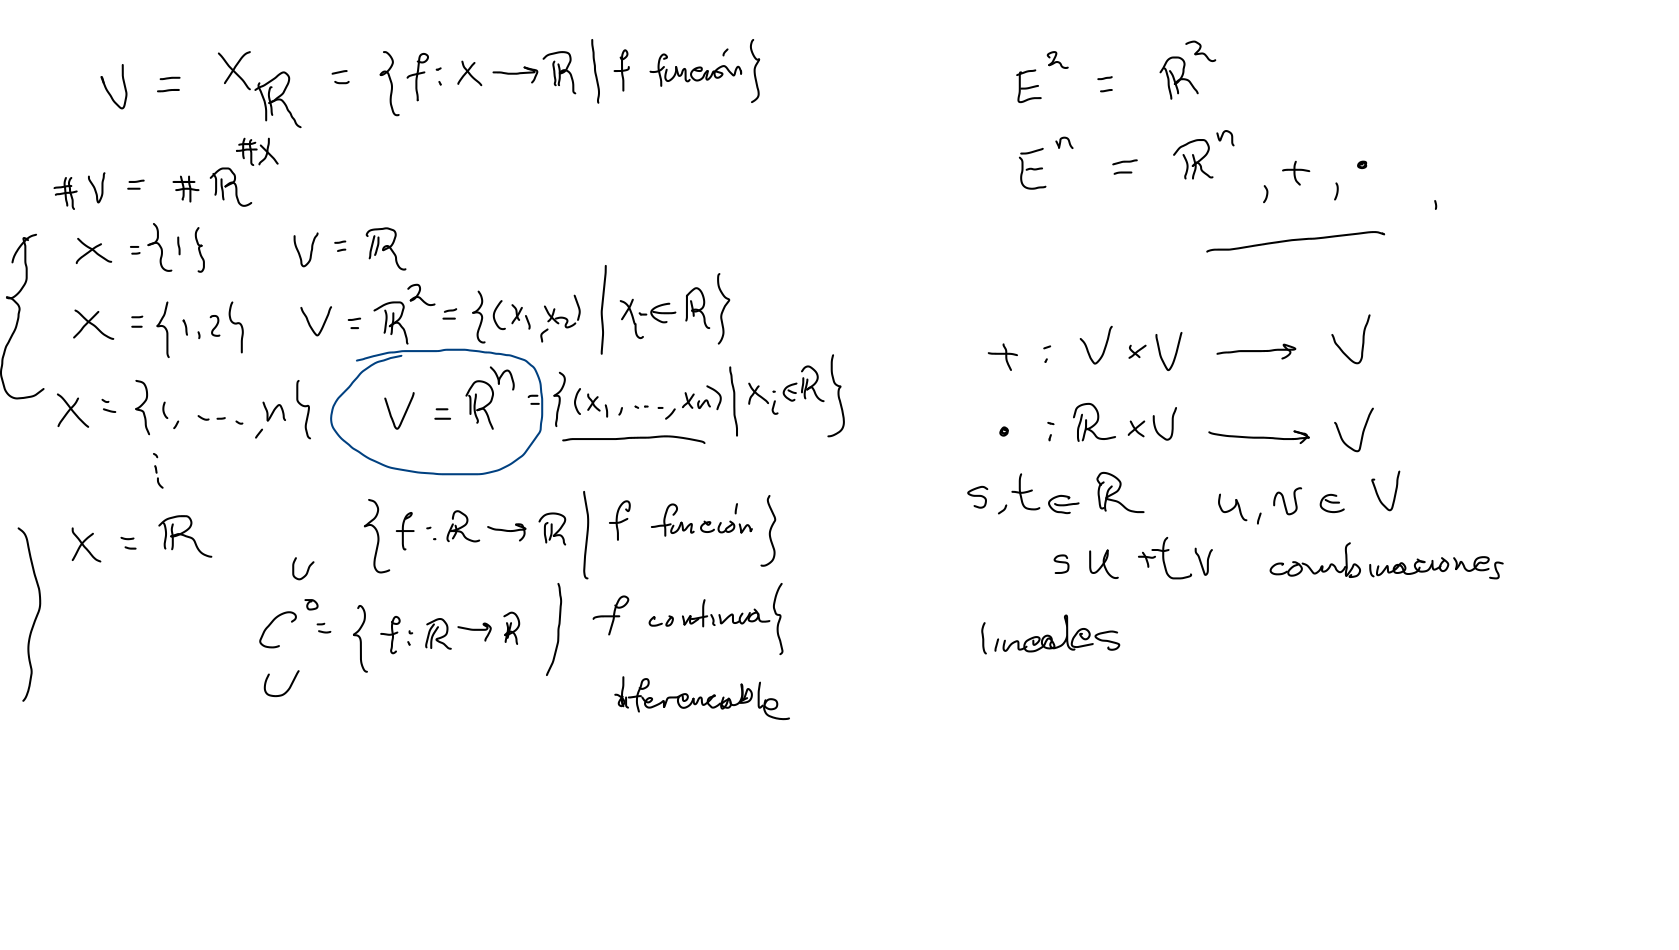 V = ˣℝ = {f : X → ℝ | f función}
#V = #ℝ^#X
X = {1}   V = ℝ
X = {1,2}   V = ℝ² = {(x₁,x₂) | xᵢ ∈ ℝ}
X = {1, ..., n}   V = ℝⁿ = {(x₁, ..., xₙ) | xᵢ ∈ ℝ}
⋮
X = ℝ   {f : ℝ → ℝ | f función}
∪
C⁰ = {f : ℝ → ℝ | f continua}
∪
diferenciable
E² = ℝ²
Eⁿ = ℝⁿ , + , • ,
+ : V × V → V
• : ℝ × V → V
s, t ∈ ℝ   u, v ∈ V
su + tv combinaciones
lineales